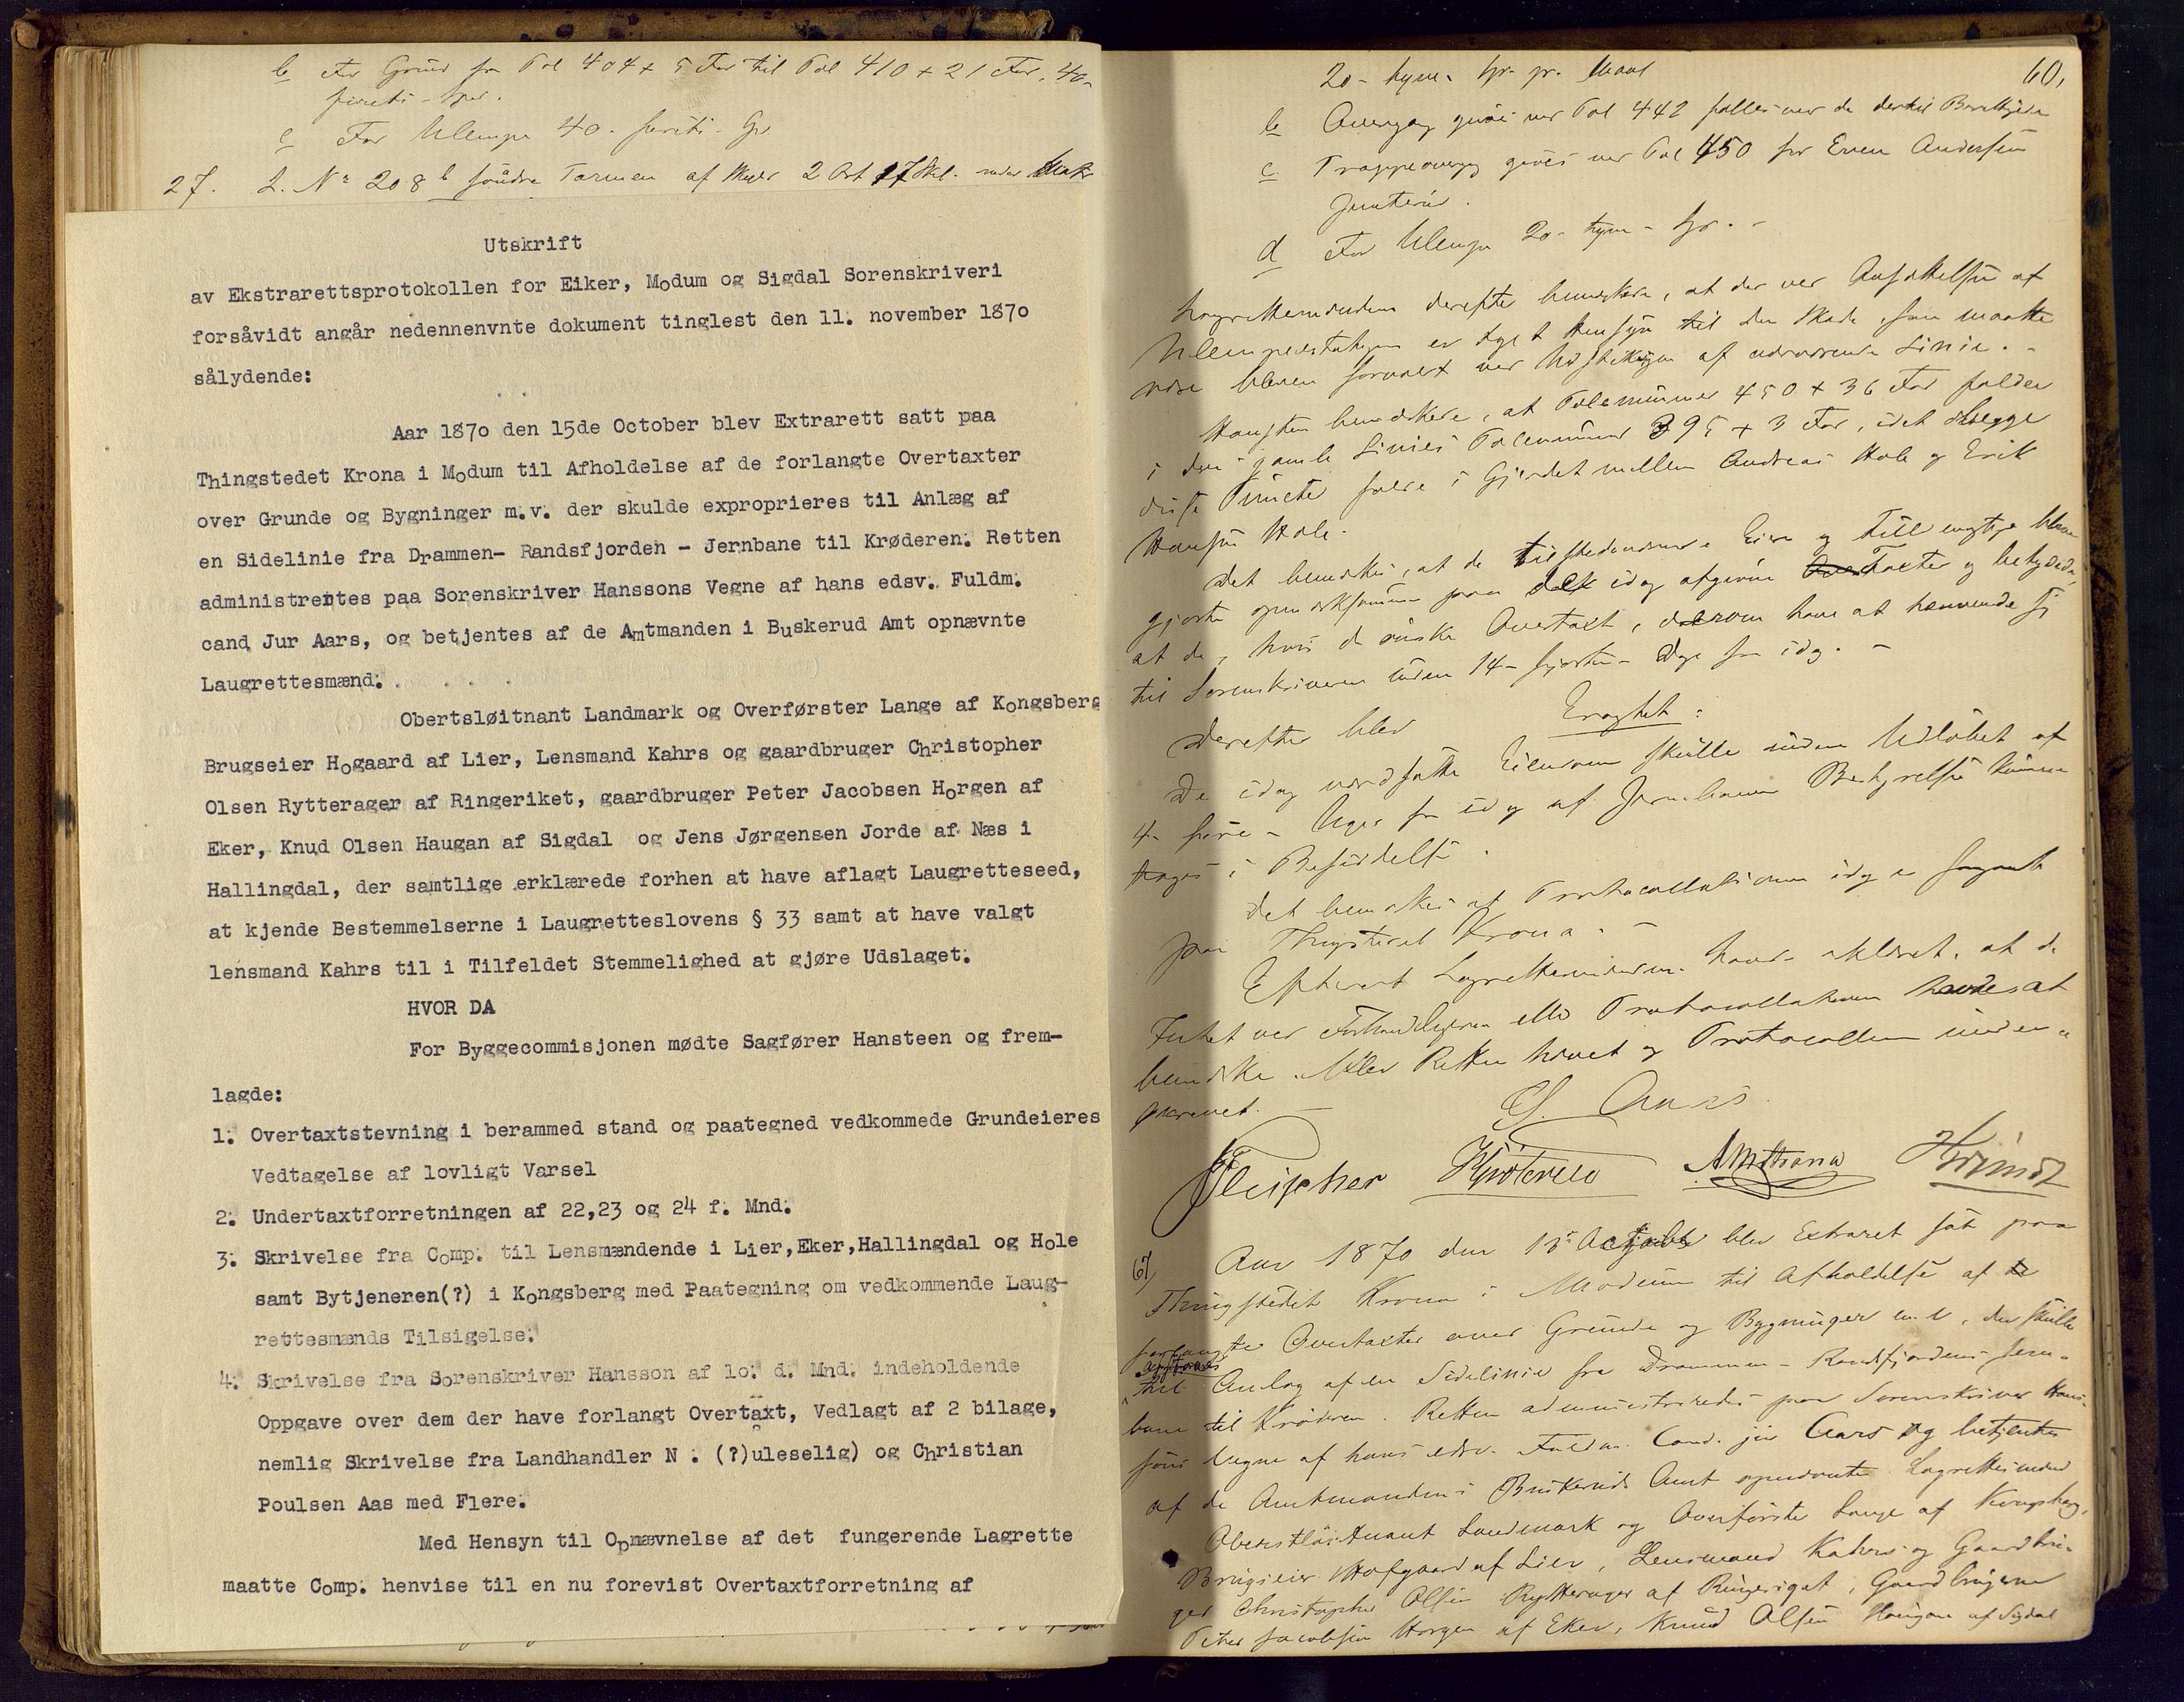 b For Grund fra Pæl 404 + 5 For til Pæl 410 + 21 For, 40-
fireti - Spd.
c For Ulempe 40 - fireti - Sp
27. L. Nº 208 b söndre Tormen af Skyld 2 Ort 17 Skl.
Utskrift
av Ekstrarettsprotokollen for Eiker, Modum og Sigdal Sorenskriveri
forsåvidt angår nedennenvnte dokument tinglest den 11. november 1870
sålydende:
Aar 1870 den 15de October blev Extrarett satt paa
Thingstedet Krona i Modum til Afholdelse af de forlangte Overtaxter
over Grunde og Bygninger m.v. der skulde exproprieres til Anlæg af
en Sidelinie fra Drammen- Randsfjorden - Jernbane til Krøderen. Retten
administrertes paa Sorenskriver Hanssons Vegne af hans edsv. Fuldm.
cand Jur Aars, og betjentes af de Amtmanden i Buskerud Amt opnævnte
Laugrettesmænd.
Obertsløitnant Landmark og Overførster Lange af Kongsberg
Brugseier Hogaard af Lier, Lensmand Kahrs og gaardbruger Christopher
Olsen Rytterager af Ringeriket, gaardbruger Peter Jacobsen Horgen af
Eker, Knud Olsen Haugan af Sigdal og Jens Jørgensen Jorde af Næs i
Hallingdal, der samtlige erklærede forhen at have aflagt Laugretteseed,
at kjende Bestemmelserne i Laugretteslovens § 33 samt at have valgt
lensmand Kahrs til i Tilfeldet Stemmelighed at gjøre Udslaget.
HVOR DA
For Byggecommisjonen mødte Sagfører Hansteen og frem-
lagde:
1. Overtaxtstevning i berammed stand og paategned vedkommede Grundeieres
Vedtagelse af lovligt Varsel
2. Undertaxtforretningen af 22,23 og 24 f. Mnd.
3. Skrivelse fra Comp. til Lensmændende i Lier,Eker,Hallingdal og Hole
samt Bytjeneren(?) i Kongsberg med Paategning om vedkommende Laug-
rettesmænds Tilsigelse.
4. Skrivelse fra Sorenskriver Hansson af lo. d. Mnd. indeholdende
Oppgave over dem der have forlangt Overtaxt, Vedlagt af 2 bilage,
nemlig Skrivelse fra Landhandler N . (?)uleselig) og Christian
Poulsen Aas med Flere.
Med Hensyn til Opnævnelse af det fungerende Lagrette
maatte Comp. henvise til en nu forevist Overtaxtforretning af
60,
20 - tyve - Sp. pr. Maal
b Overgang gives ved Pæl 442 fælles med de dertil Berettigede
c Trappeovergang gives ved Pæl 450 for Even Andersen
d For Ulempe 20 - tyve - Sp. -
Laugrettemændene derefter bemærkede, at der ved Ansættelsen af
Ulempeerstatningen er taget Hensyn til den Skade som maatte
være bleven forvoldt ved Udstikningen af nærværende Linie. -
Hansteen bemærkede, at Pælenummer 450 + 36 For falder
i den gamle Linies Pælenummer 395 + 3 For, idet begge
disse Puncter falde i Gjerdet mellem Andreas Hole og Erik
Hansen Hole.
Det bemærkes, at de tilstedeværende Eiere og Fuldmægtige bleve
gjorte opmærksomme paa de idag afgivne Taxter og betydede,
at de, hvis de ønske Overtaxt, derom have at henvende sig
til Sorenskriveren inden 14 - fjorten - Dage fra idag. -
Derefter blev Eragtet:
De idag værdsatte Eiendomme skulle inden Udløbet af
4 - fire - Uger fra idag af Jernbanens Bestyrelse kunne
tages i Besiddelse.
Det bemærkes at Protocollationen idag er foregaaet
paa Thingstedet Krona. -
Efterat Lagrettemændene havde erklæret, at de
Intet ved Forhandlingerne eller Protocollationen havde at
bemærke, blev Retten hævet og Protocollen under-
skrevet. -
Aars
67, Aar 1870 den 15 October blev Extraret sat paa
Thingstedet Krona i Modum til Afholdelse af de
forlangte Overtaxter over Grunde og Bygninger m. v., der skulle
afstaaes
til Anlæg af en Sidelinie fra Drammen - Randsfjordens Jern-
bane til Krøderen. Retten administreredes paa Sorenskriver Hans-
sons Vegne af hans edsv. Fuldm. Cand. jur Aars og betjentes
af de Amtmanden i Buskeruds Amt opnævnte Lagrettesmænd
Oberstløitnant Landmark og Overførster Lange af Kongsberg,
Brugseier Hofgaard af Lier, Lensmand Kahrs og Gaardbru-
ger Christopher Olsen Rytterager af Ringeriget, Gaardbrugerne
Peter Jacobsen Horgen af Eker, Knud Olsen Haugan af Sigdal